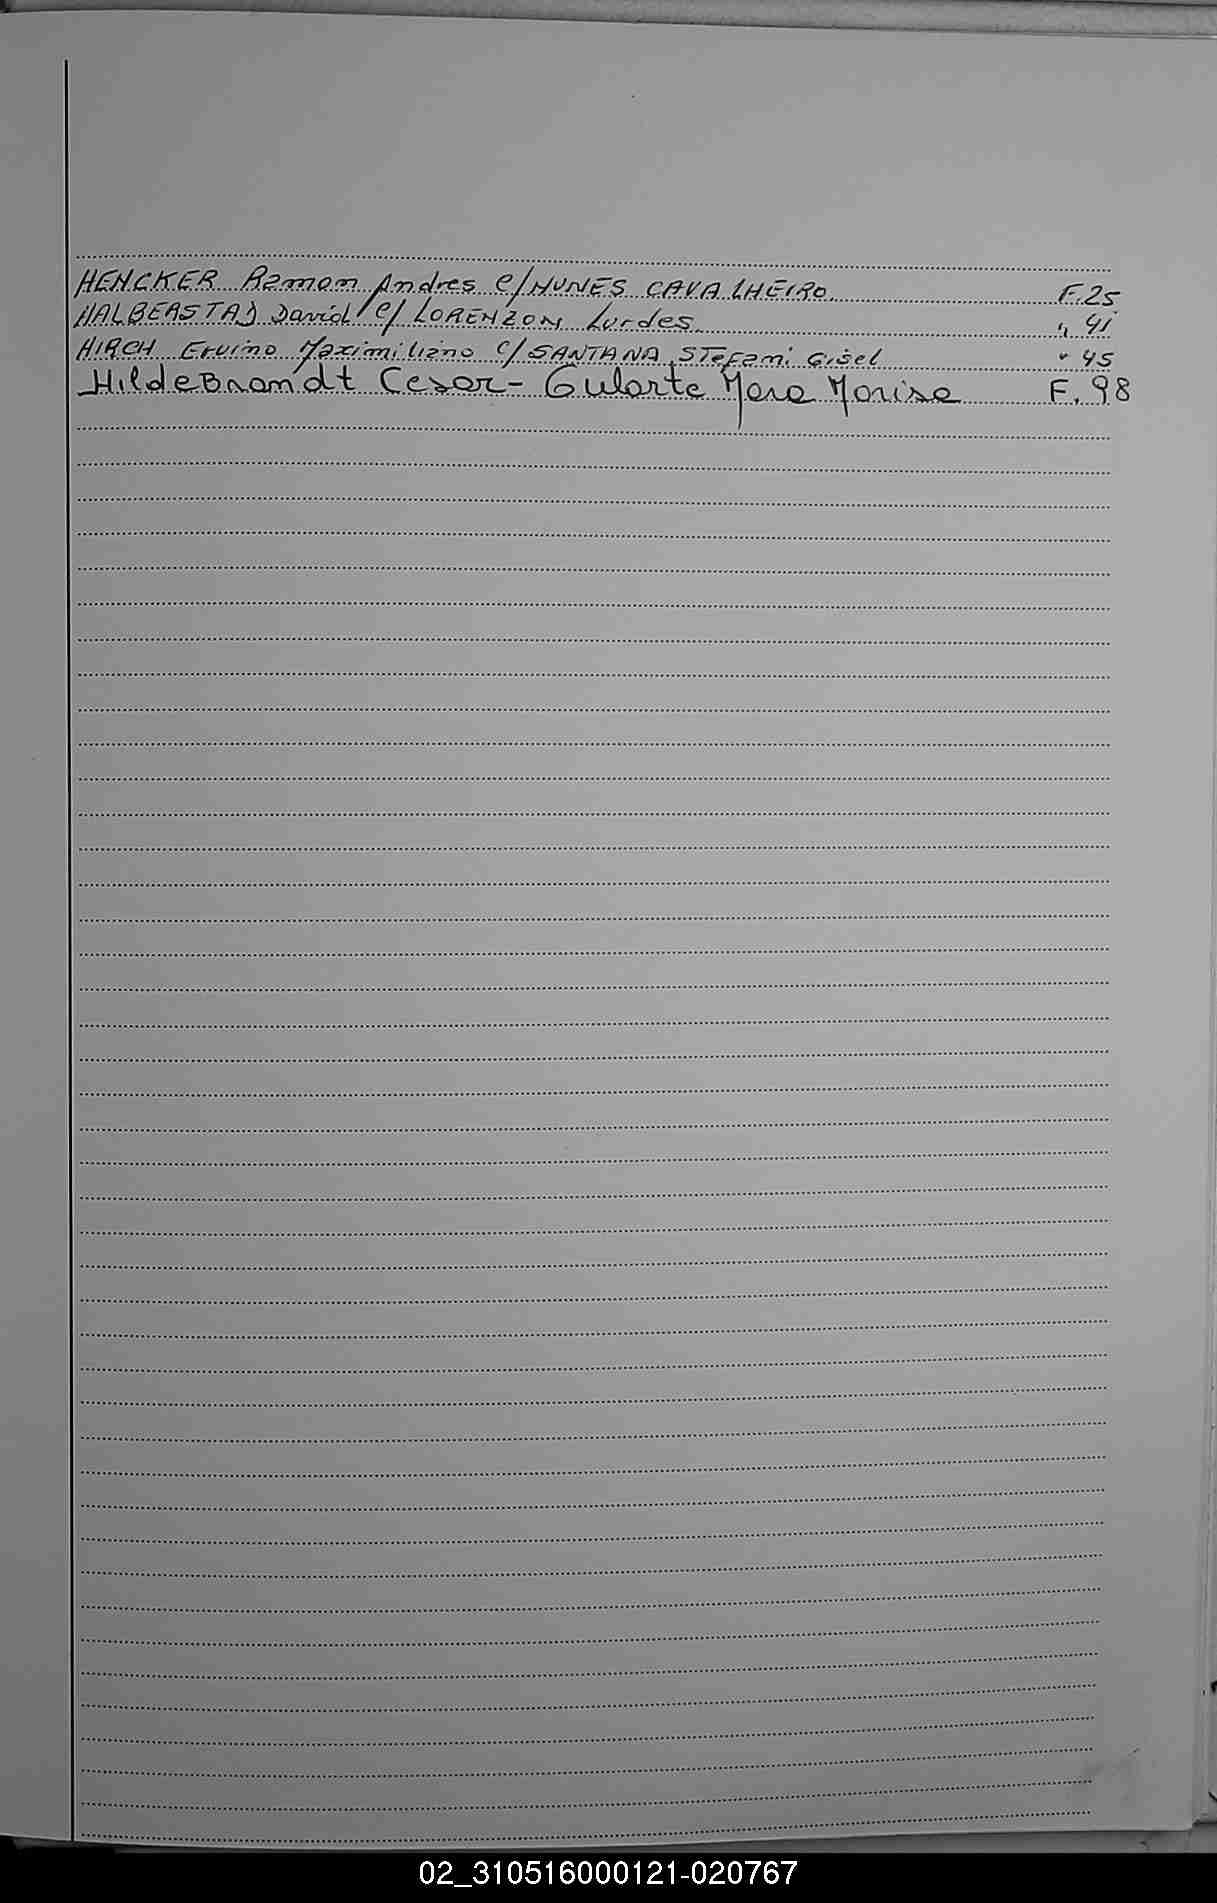 HENCKER Ramon Andres c/ NUNES CAVALHEIRO F.25
HALBERSTAD David c/ LORENZON Lurdes " 41
HIRCH Ervino Maximiliano c/ SANTANA Stefani Gisel " 45
HildeBrandt Cesar - Gularte Mara Marisa F. 98
02_310516000121-020767